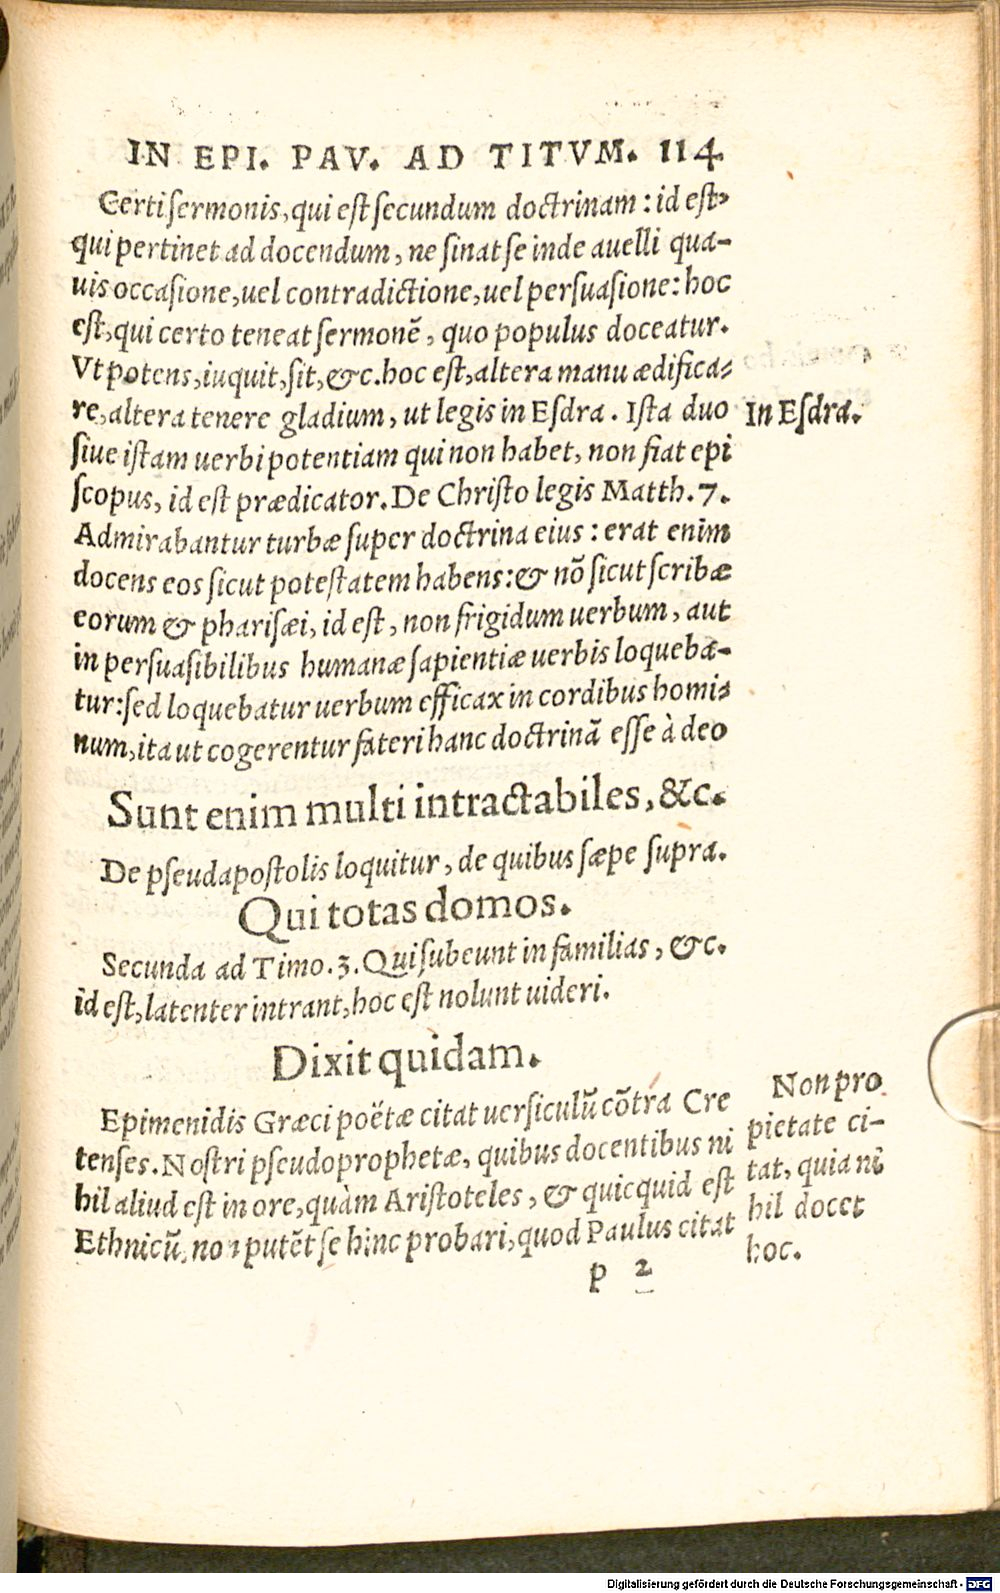 IN EPI. PAV. AD TITVM. 114
Certi ſermonis, qui eſt ſecundum doctrinam: id eſt,
qui pertinet ad docendum, ne ſinat ſe inde auelli qua-
uis occaſione, uel contradictione, uel perſuaſione: hoc
eſt, qui certo teneat ſermonē, quo populus doceatur.
Vt potens, iuquit, ſit, &c. hoc eſt, altera manu ædifica-
re, altera tenere gladium, ut legis in Eſdra. Iſta duo
In Eſdra.
ſiue iſtam uerbi potentiam qui non habet, non fiat epi
ſcopus, id eſt prædicator. De Chriſto legis Matth. 7.
Admirabantur turbæ ſuper doctrina eius: erat enim
docens eos ſicut poteſtatem habens: & nō ſicut ſcribæ
eorum & phariſæi, id eſt, non frigidum uerbum, aut
in perſuaſibilibus humanæ ſapientiæ uerbis loqueba-
tur: ſed loquebatur uerbum efficax in cordibus homi-
num, ita ut cogerentur fateri hanc doctrinā eſſe à deo
Sunt enim multi intractabiles, &c.
De pſeudapoſtolis loquitur, de quibus ſæpe ſupra.
Qui totas domos.
Secunda ad Timo. 3. Qui ſubeunt in familias, &c.
id eſt, latenter intrant, hoc eſt nolunt uideri.
Dixit quidam.
Epimenidis Græci poëtæ citat uerſiculū cōtra Cre
tenſes. Noſtri pſeudoprophetæ, quibus docentibus ni
hil aliud eſt in ore, quàm Ariſtoteles, & quicquid eſt
Ethnicū, non putēt ſe hinc probari, quod Paulus citat
Non pro
pietate ci-
tat, quia ni
hil docet
hoc.
p 2
Digitalisierung gefördert durch die Deutsche Forschungsgemeinschaft - DFG